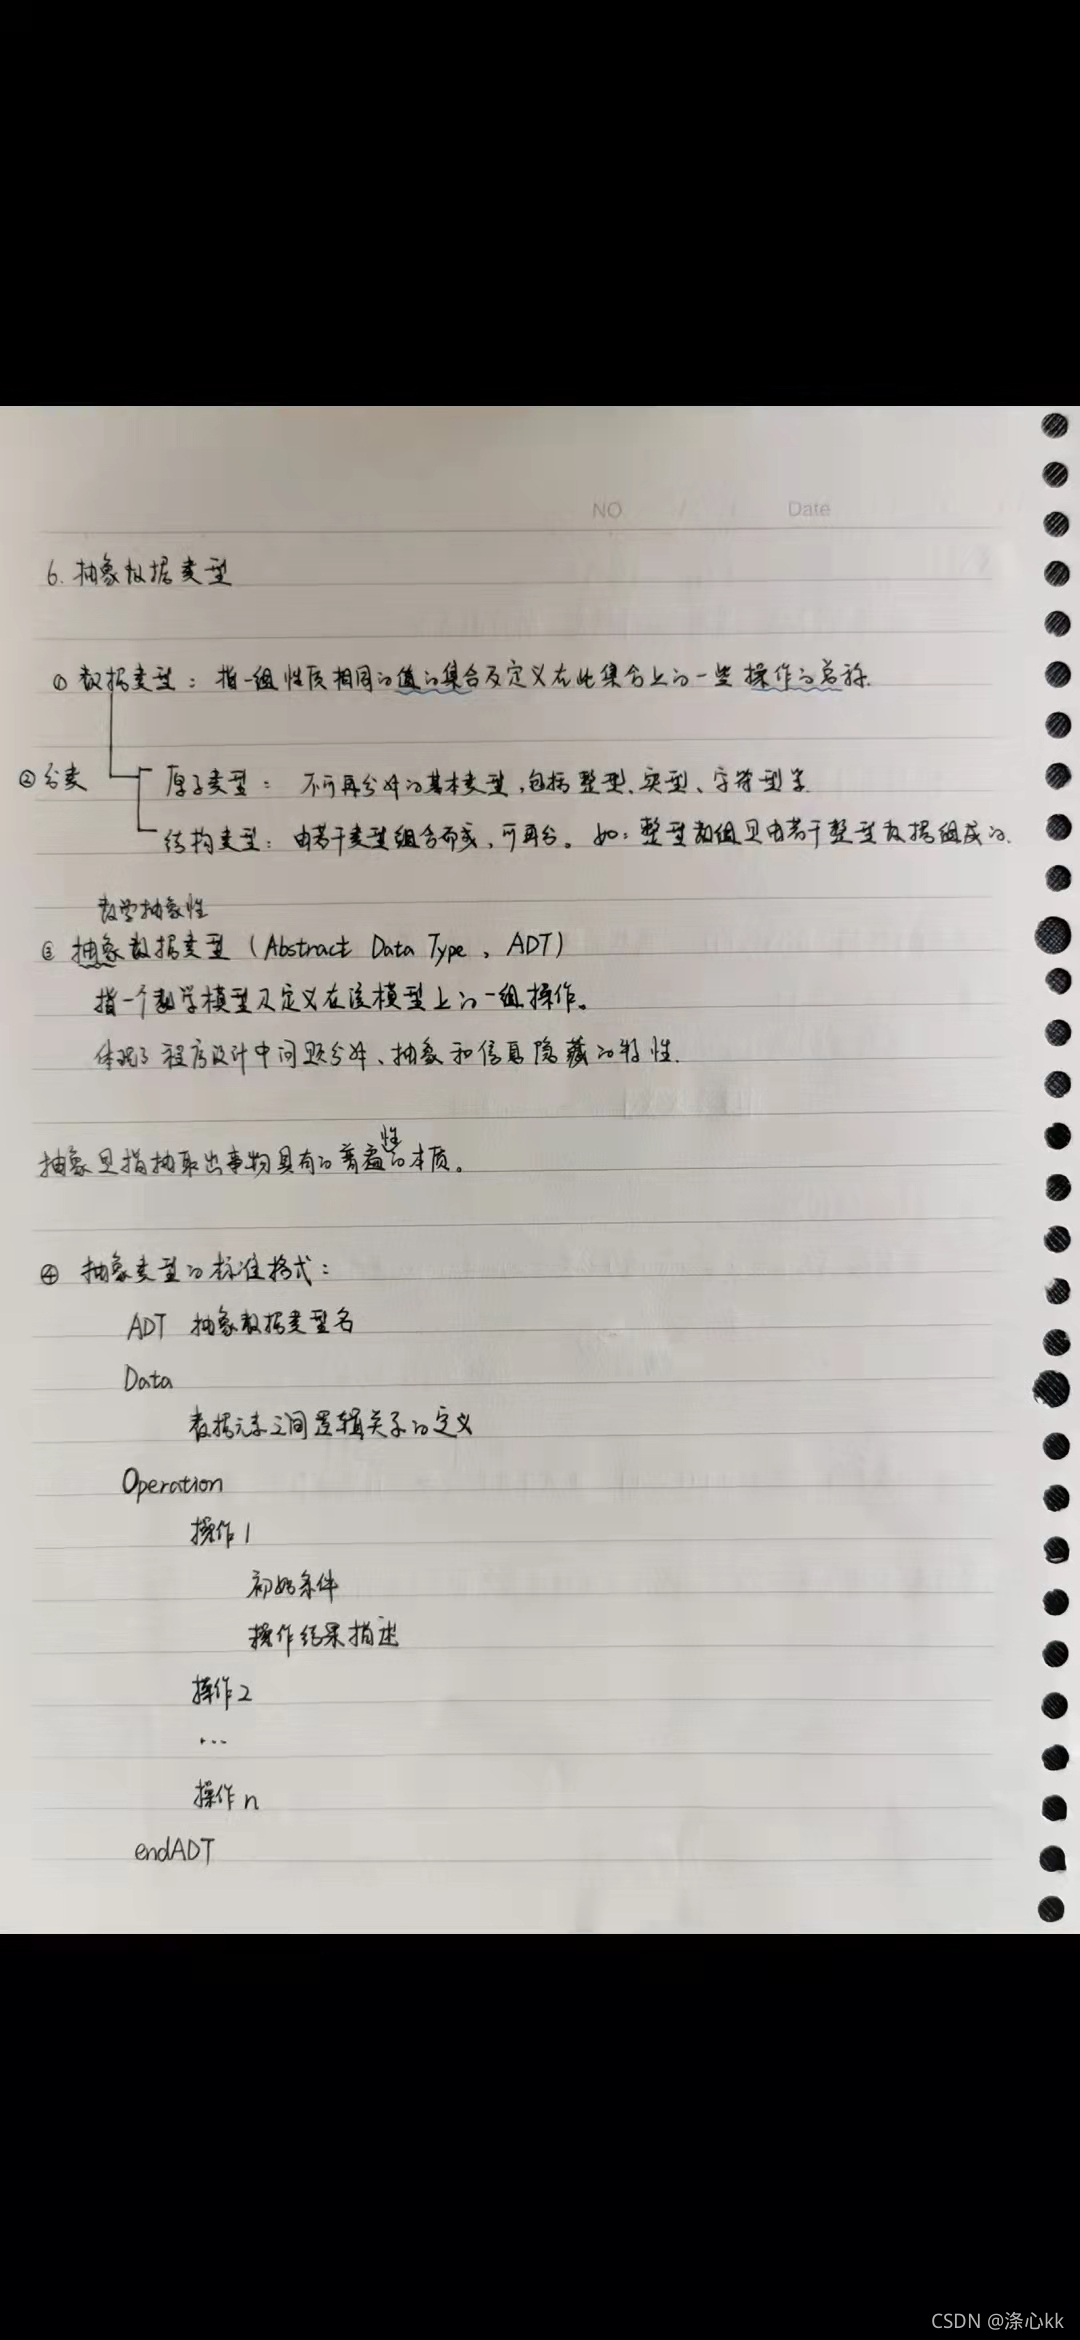 NO.
Date
6. 抽象数据类型
① 数据类型：指一组性质相同的值的集合及定义在此集合上的一些操作的总称.
② 分类
原子类型：不可再分解的基本类型,包括整型、实型、字符型等
结构类型：由若干类型组合而成，可再分。如：整型数组是由若干整型数据组成的.
数学抽象性
③ 抽象数据类型（Abstract Data Type，ADT）
指一个数学模型及定义在该模型上的一组操作。
体现了程序设计中问题分解、抽象和信息隐藏的特性.
抽象是指抽取出事物具有的普遍性的本质。
④ 抽象类型的标准格式：
ADT 抽象数据类型名
Data
数据元素之间逻辑关系的定义
Operation
操作1
初始条件
操作结果描述
操作2
...
操作n
endADT
CSDN @涤心kk